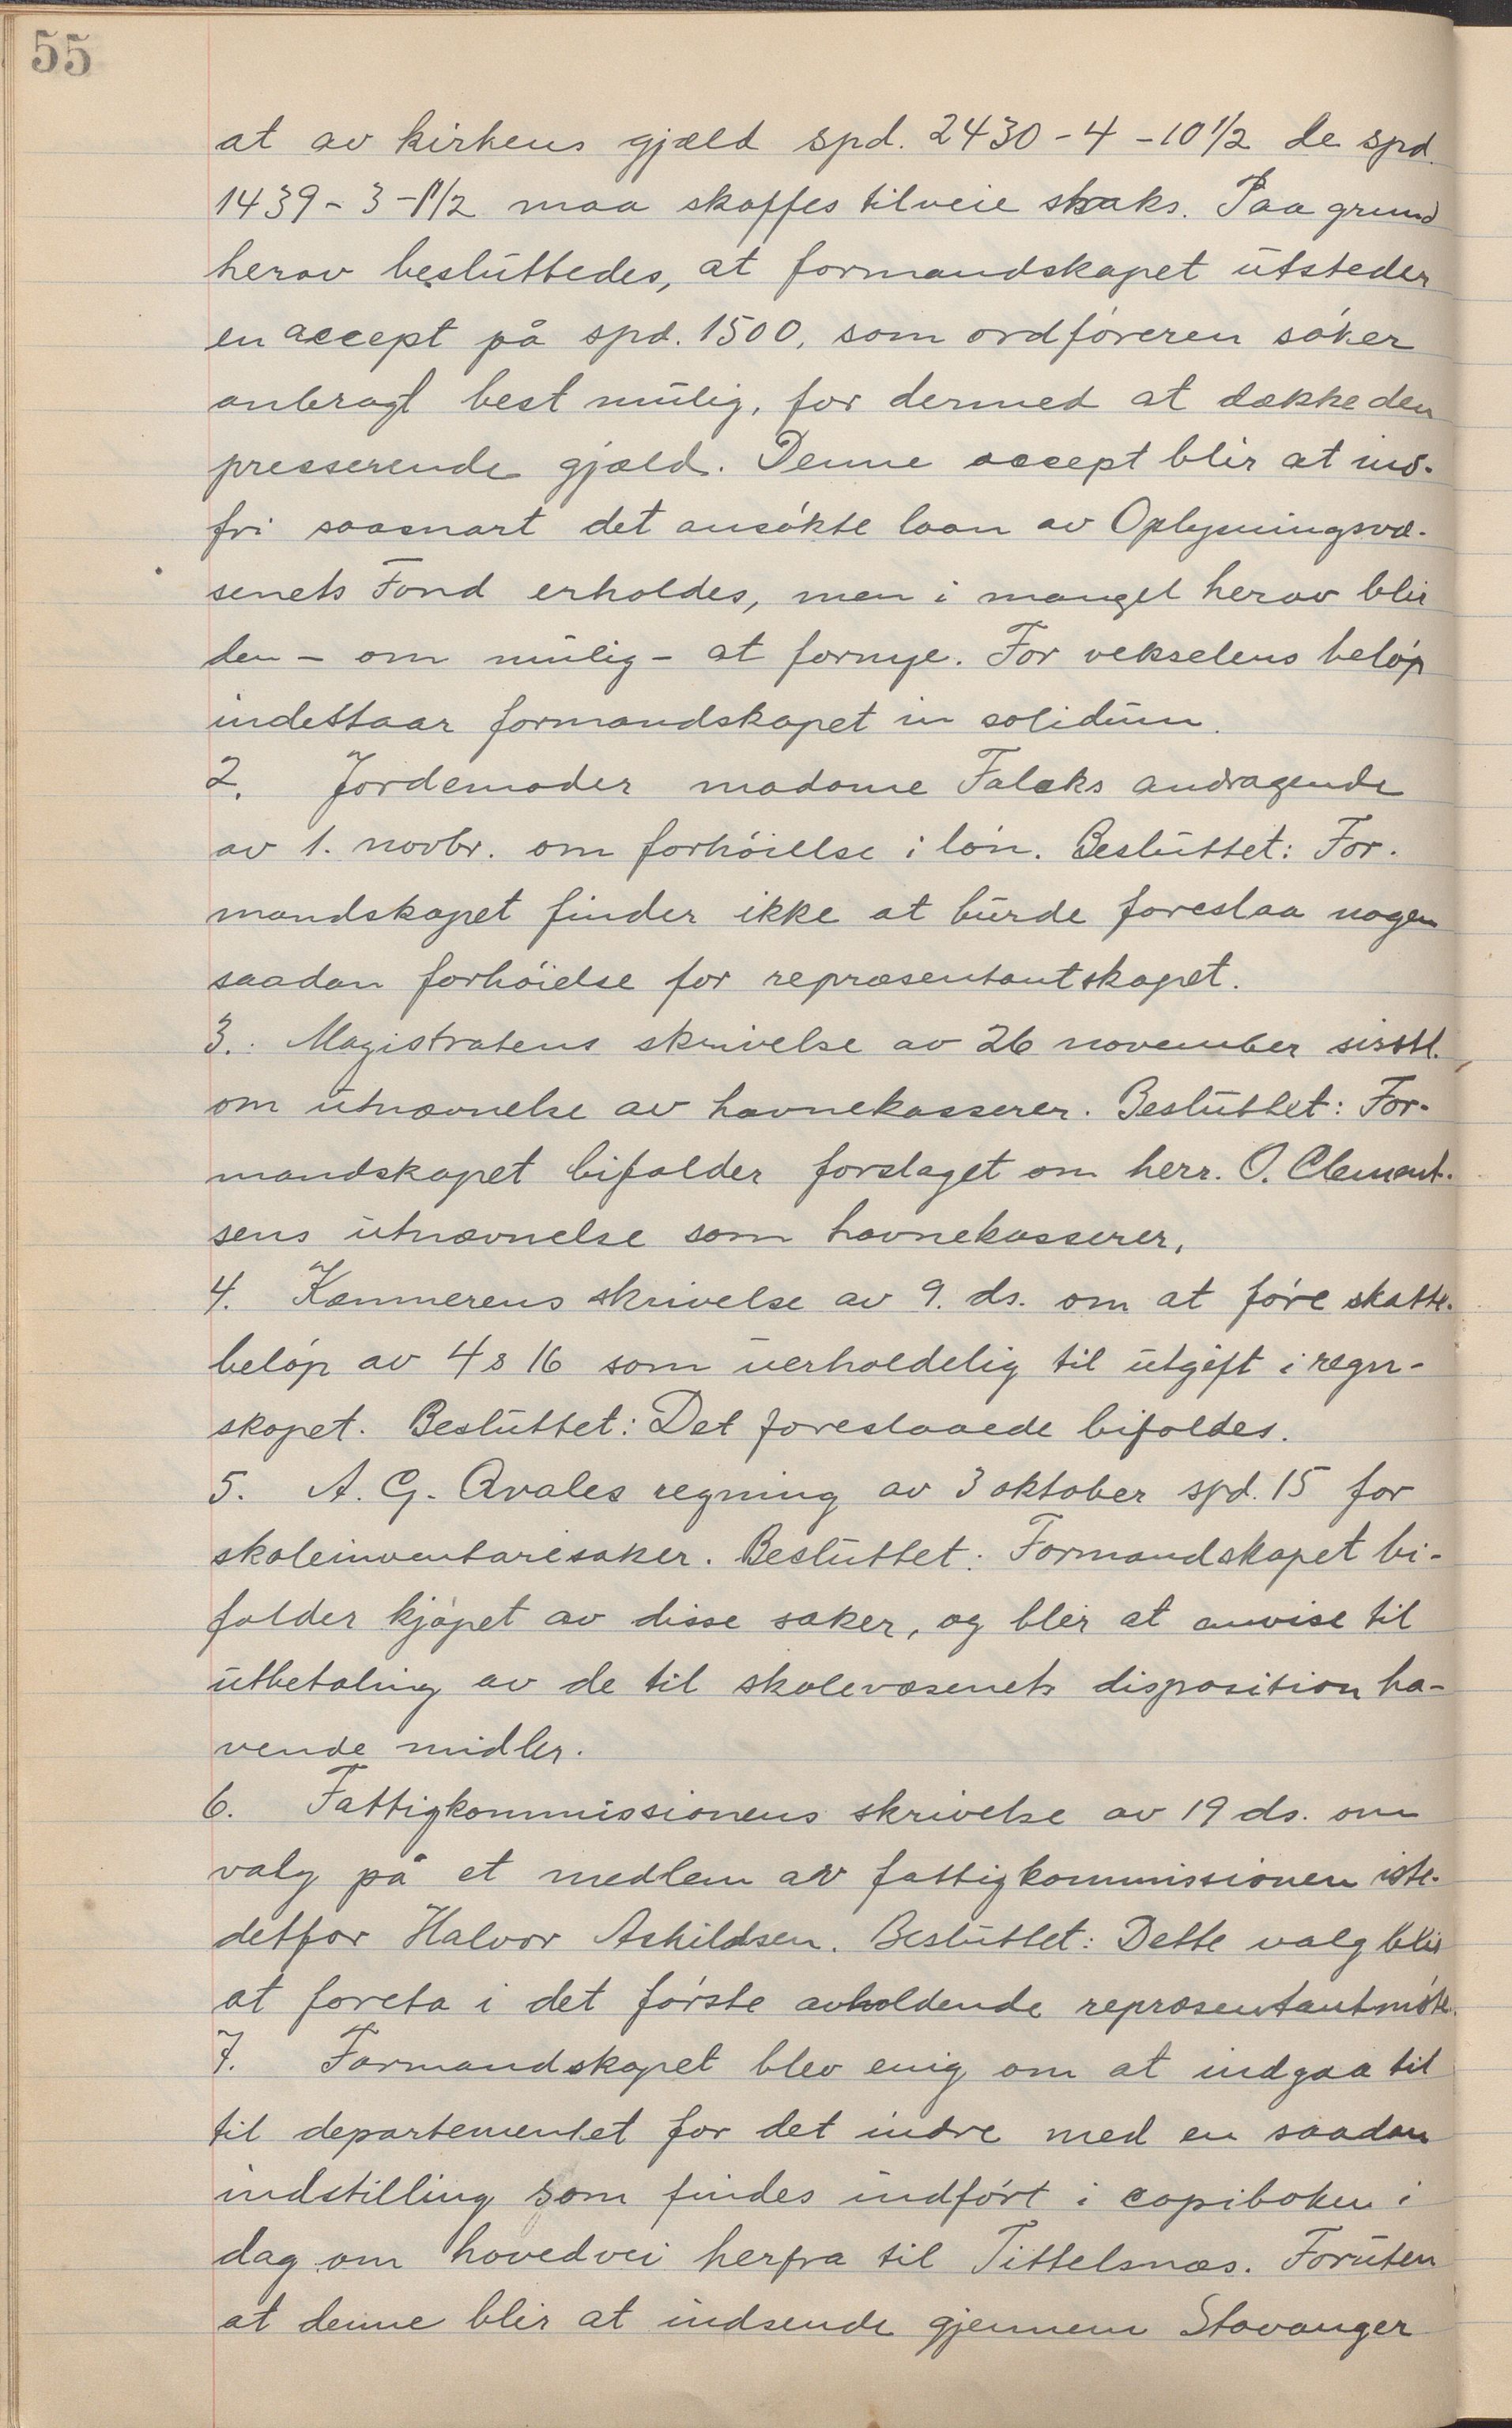 55
at av kirkens gjæld spd. 2430 - 4 - 10 1/2 de spd.
1439 - 3 - 1 1/2 maa skaffes tilveie straks. Paa grund
herav besluttedes, at formandskapet utsteder
en accept på spd. 1500, som ordføreren søker
anbragt best mulig, for dermed at dække den
presserende gjæld. Denne accept blir at ind-
fri saasnart det ansøkte laan av Oplysningsvæ-
senets Fond erholdes, men i mangel herav blir
den - om mulig - at fornye. For vekselens beløp
indestaar formandskapet in solidum.
2. Jordemoder madame Falcks andragende
av 1. novbr. om forhöielse i løn. Besluttet: For-
mandskapet finder ikke at burde foreslaa nogen
saadan forhöielse for repræsentantskapet.
3. Magistratens skrivelse av 26 november sisstl.
om utnævnelse av havnekasserer. Besluttet: For-
mandskapet bifalder forslaget om herr. O. Clement-
sens utnævnelse som havnekasserer.
4. Kæmnerens skrivelse av 9. ds. om at føre skatte-
beløp av 4 s 16 som uerholdelig til utgift i regn-
skapet. Besluttet: Det foreslaaede bifaldes.
5. A. G. Qvales regning av 3 oktober spd. 15 for
skoleinventariesaker. Besluttet: Formandskapet bi-
falder kjøpet av disse saker, og blir at anvise til
utbetaling av de til skolevæsenets disposition ha-
vende midler.
6. Fattigkommissionens skrivelse av 19 ds. om
valg på et medlem av fattigkommissionen iste-
detfor Halvor Askildsen. Besluttet: Dette valg blir
at foreta i det første avholdende repræsentantmøte.
7. Formandskapet blev enig om at indgaa til
til departementet for det indre med en saadan
indstilling som findes indført i copiboken i
dag om hovedvei herfra til Tittelsnæs. Foruten
at denne blir at indsende gjennem Stavanger